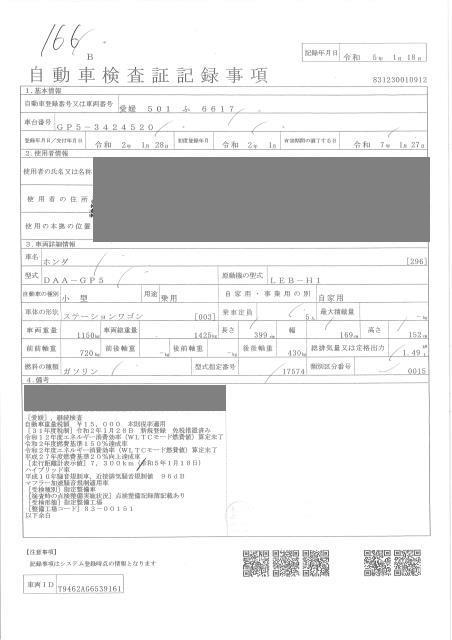 166
B
記録年月日 令和 5年 1月 18日
自動車検査証記録事項
831230010912
1.基本情報
自動車登録番号又は車両番号 愛媛 501 ふ 6617
車台番号 GP5-3424520
登録年月日/交付年月日 令和 2年 1月 28日 初度登録年月 令和 2年 1月 有効期間の満了する日 令和 7年 1月 27日
2.使用者情報
使用者の氏名又は名称
使用者の住所
使用の本拠の位置
3.車両詳細情報
車名 ホンダ [296]
型式 DAA-GP5 原動機の型式 LEB-H1
自動車の種別 小型 用途 乗用 自家用・事業用の別 自家用
車体の形状 ステーションワゴン [003] 乗車定員 5人 最大積載量 -kg
車両重量 1150kg 車両総重量 1425kg 長さ 399cm 幅 169cm 高さ 152cm
前前軸重 720kg 前後軸重 -kg 後前軸重 -kg 後後軸重 430kg 総排気量又は定格出力 1.49L
燃料の種類 ガソリン 型式指定番号 17574 類別区分番号 0015
4.備考
[愛媛],継続検査
自動車重量税額 ¥15,000 本則税率適用
令和12年度エネルギー消費効率(WLTCモード燃費値)算定未了
令和2年度燃費基準150%達成車
令和2年度エネルギー消費効率(WLTCモード燃費値)算定未了
平成27年度燃費基準20%向上達成車
[走行距離計表示値]7,300km(令和5年1月18日)
ハイブリッド車
平成10年騒音規制車、近接排気騒音規制値 96dB
マフラー加速騒音規制適用車
[受検種別]指定整備車
[検査時の点検整備実施状況]点検整備記録簿記載あり
[受検形態]指定整備工場
[整備工場コード]83-00151
以下余白
【注意事項】
記録事項はシステム登録時点の情報となります
車両ID T9462AG6539161